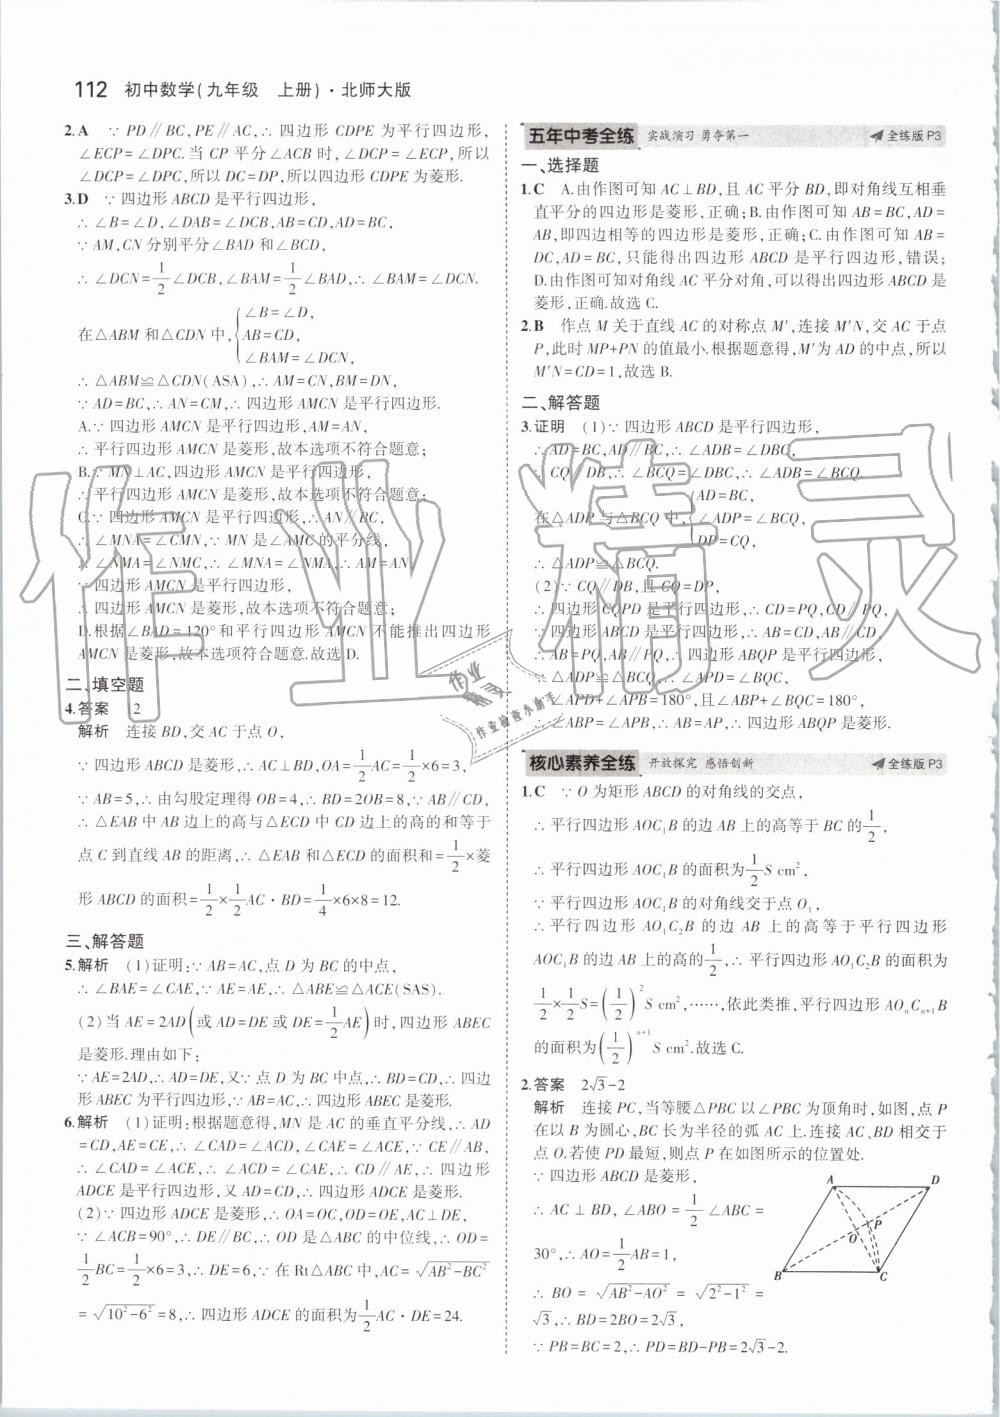 112 初中数学(九年级 上册)·北师大版
2.A ∵ PD∥BC,PE∥AC,∴ 四边形 CDPE 为平行四边形,
∠ECP=∠DPC.当 CP 平分∠ACB 时,∠DCP=∠ECP,所以
∠DCP=∠DPC,所以 DC=DP,所以四边形 CDPE 为菱形.
3.D ∵ 四边形 ABCD 是平行四边形,
∴ ∠B=∠D,∠DAB=∠DCB,AB=CD,AD=BC,
∵ AM,CN 分别平分∠BAD 和∠BCD,
∴ ∠DCN=1/2∠DCB,∠BAM=1/2∠BAD,∴ ∠BAM=∠DCN.
在△ABM 和△CDN 中,{∠B=∠D,
AB=CD,
∠BAM=∠DCN,
∴ △ABM≌△CDN(ASA),∴ AM=CN,BM=DN,
∵ AD=BC,∴ AN=CM,∴ 四边形 AMCN 是平行四边形.
A.∵ 四边形 AMCN 是平行四边形,AM=AN,
∴ 平行四边形 AMCN 是菱形,故本选项不符合题意;
B.∵ MN⊥AC,四边形 AMCN 是平行四边形,
∴ 平行四边形 AMCN 是菱形,故本选项不符合题意;
C.∵ 四边形 AMCN 是平行四边形,∴ AN∥BC,
∴ ∠MNA=∠CMN,∵ MN 是∠AMC 的平分线,
∴ ∠NMA=∠NMC,∴ ∠MNA=∠NMA,∴ AM=AN,
∵ 四边形 AMCN 是平行四边形,
∴ 四边形 AMCN 是菱形,故本选项不符合题意;
D.根据∠BAD=120°和平行四边形 AMCN 不能推出四边形
AMCN 是菱形,故本选项符合题意.故选 D.
二、填空题
4.答案 12
解析 连接 BD,交 AC 于点 O,
∵ 四边形 ABCD 是菱形,∴ AC⊥BD,OA=1/2AC=1/2×6=3,
∵ AB=5,∴ 由勾股定理得 OB=4,∴ BD=2OB=8,∵ AB∥CD,
∴ △EAB 中 AB 边上的高与△ECD 中 CD 边上的高的和等于
点 C 到直线 AB 的距离,∴ △EAB 和△ECD 的面积和=1/2×菱
形 ABCD 的面积=1/2×1/2AC·BD=1/4×6×8=12.
三、解答题
5.解析 (1)证明:∵ AB=AC,点 D 为 BC 的中点,
∴ ∠BAE=∠CAE,∵ AE=AE,∴ △ABE≌△ACE(SAS).
(2)当 AE=2AD(或 AD=DE 或 DE=1/2AE)时,四边形 ABEC
是菱形.理由如下:
∵ AE=2AD,∴ AD=DE,又∵ 点 D 为 BC 中点,∴ BD=CD,∴ 四边
形 ABEC 为平行四边形,∵ AB=AC,∴ 四边形 ABEC 是菱形.
6.解析 (1)证明:根据题意得,MN 是 AC 的垂直平分线,∴ AD
=CD,AE=CE,∴ ∠CAD=∠ACD,∠CAE=∠ACE,∵ CE∥AB,
∴ ∠CAD=∠ACE,∴ ∠ACD=∠CAE,∴ CD∥AE,∴ 四边形
ADCE 是平行四边形,又 AD=CD,∴ 四边形 ADCE 是菱形.
(2)∵ 四边形 ADCE 是菱形,∴ OA=OC,OD=OE,AC⊥DE,
∵ ∠ACB=90°,∴ DE∥BC,∴ OD 是△ABC 的中位线,∴ OD=
1/2BC=1/2×6=3,∴ DE=6,∵ 在 Rt△ABC 中,AC=√(AB²-BC²)
=√(10²-6²)=8,∴ 四边形 ADCE 的面积为1/2AC·DE=24.
五年中考全练 实战演习 勇夺第一 全练版 P3
一、选择题
1.C A.由作图可知 AC⊥BD,且 AC 平分 BD,即对角线互相垂
直平分的四边形是菱形,正确;B.由作图可知 AB=BC,AD=
AB,即四边相等的四边形是菱形,正确;C.由作图可知 AB=
DC,AD=BC,只能得出四边形 ABCD 是平行四边形,错误;
D.由作图可知对角线 AC 平分对角,可以得出四边形 ABCD 是
菱形,正确.故选 C.
2.B 作点 M 关于直线 AC 的对称点 M′,连接 M′N,交 AC 于点
P,此时 MP+PN 的值最小.根据题意得,M′为 AD 的中点,所以
M′N=CD=1,故选 B.
二、解答题
3.证明 (1)∵ 四边形 ABCD 是平行四边形,
∴ AD=BC,AD∥BC,∴ ∠ADB=∠DBC,
∵ CQ∥DB,∴ ∠BCQ=∠DBC,∴ ∠ADB=∠BCQ.
在△ADP 与△BCQ 中,{AD=BC,
∠ADP=∠BCQ,
DP=CQ,
∴ △ADP≌△BCQ.
(2)∵ CQ∥DB,且 CQ=DP,
∴ 四边形 CQPD 是平行四边形,∴ CD=PQ,CD∥PQ,
∵ 四边形 ABCD 是平行四边形,∴ AB=CD,AB∥CD,
∴ AB=PQ,AB∥PQ,∴ 四边形 ABQP 是平行四边形,
∵ △ADP≌△BCQ,∴ ∠APD=∠BQC,
∵ ∠APD+∠APB=180°,且∠ABP+∠BQC=180°,
∴ ∠ABP=∠APB,∴ AB=AP,∴ 四边形 ABQP 是菱形.
核心素养全练 开放探究 感悟创新 全练版 P3
1.C ∵ O 为矩形 ABCD 的对角线的交点,
∴ 平行四边形 AOC₁B 的边 AB 上的高等于 BC 的1/2,
∴ 平行四边形 AOC₁B 的面积为1/2S cm²,
∵ 平行四边形 AOC₁B 的对角线交于点 O₁,
∴ 平行四边形 AO₁C₂B 的边 AB 上的高等于平行四边形
AOC₁B 的边 AB 上的高的1/2,∴ 平行四边形 AO₁C₂B 的面积为
1/2×1/2S=(1/2)²S cm²,……,依此类推,平行四边形 AOₙCₙ₊₁B
的面积为(1/2)ⁿ⁺¹S cm².故选 C.
2.答案 2√3-2
解析 连接 PC,当等腰△PBC 以∠PBC 为顶角时,如图,点 P
在以 B 为圆心,BC 长为半径的弧 AC 上.连接 AC,BD 相交于
点 O.若使 PD 最短,则点 P 在如图所示的位置处.
∵ 四边形 ABCD 是菱形,
∴ AC⊥BD,∠ABO=1/2∠ABC=
30°,∴ AO=1/2AB=1,
∴ BO=√(AB²-AO²)=√(2²-1²)=
√3,∴ BD=2BO=2√3,
∵ PB=BC=2,∴ PD=BD-PB=2√3-2.
A
D
P
O
B
C
作业精灵
作业
精灵
作业检查小助手